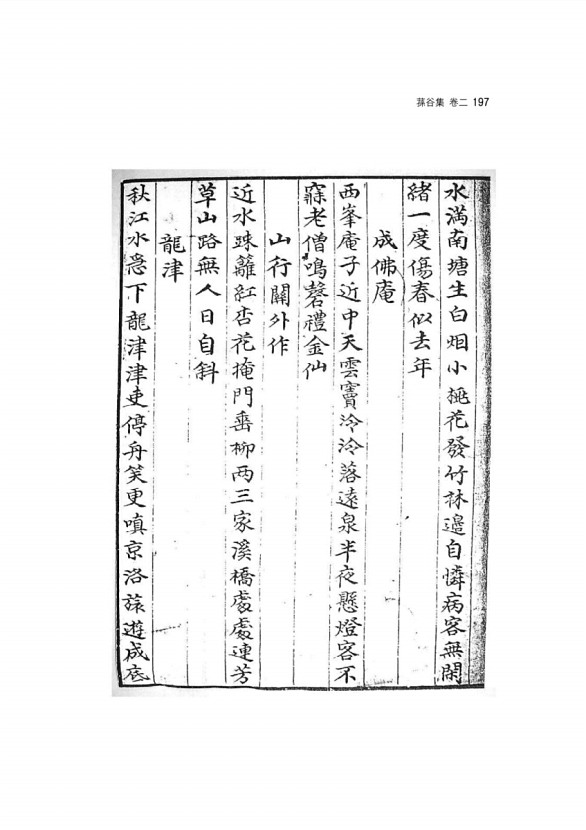 蓀谷集 卷二 197
水滿南塘生白烟小桃花發竹林邊自憐病客無閑
緒一度傷春似去年
成佛庵
西峯庵子近中天雲竇泠泠落遠泉半夜懸燈客不
寐老僧鳴磬禮金仙
山行關外作
近水踈籬紅杏花掩門垂柳兩三家溪橋處處連芳
草山路無人日自斜
龍津
秋江水急下龍津津吏停舟笑更嗔京洛旅遊成底